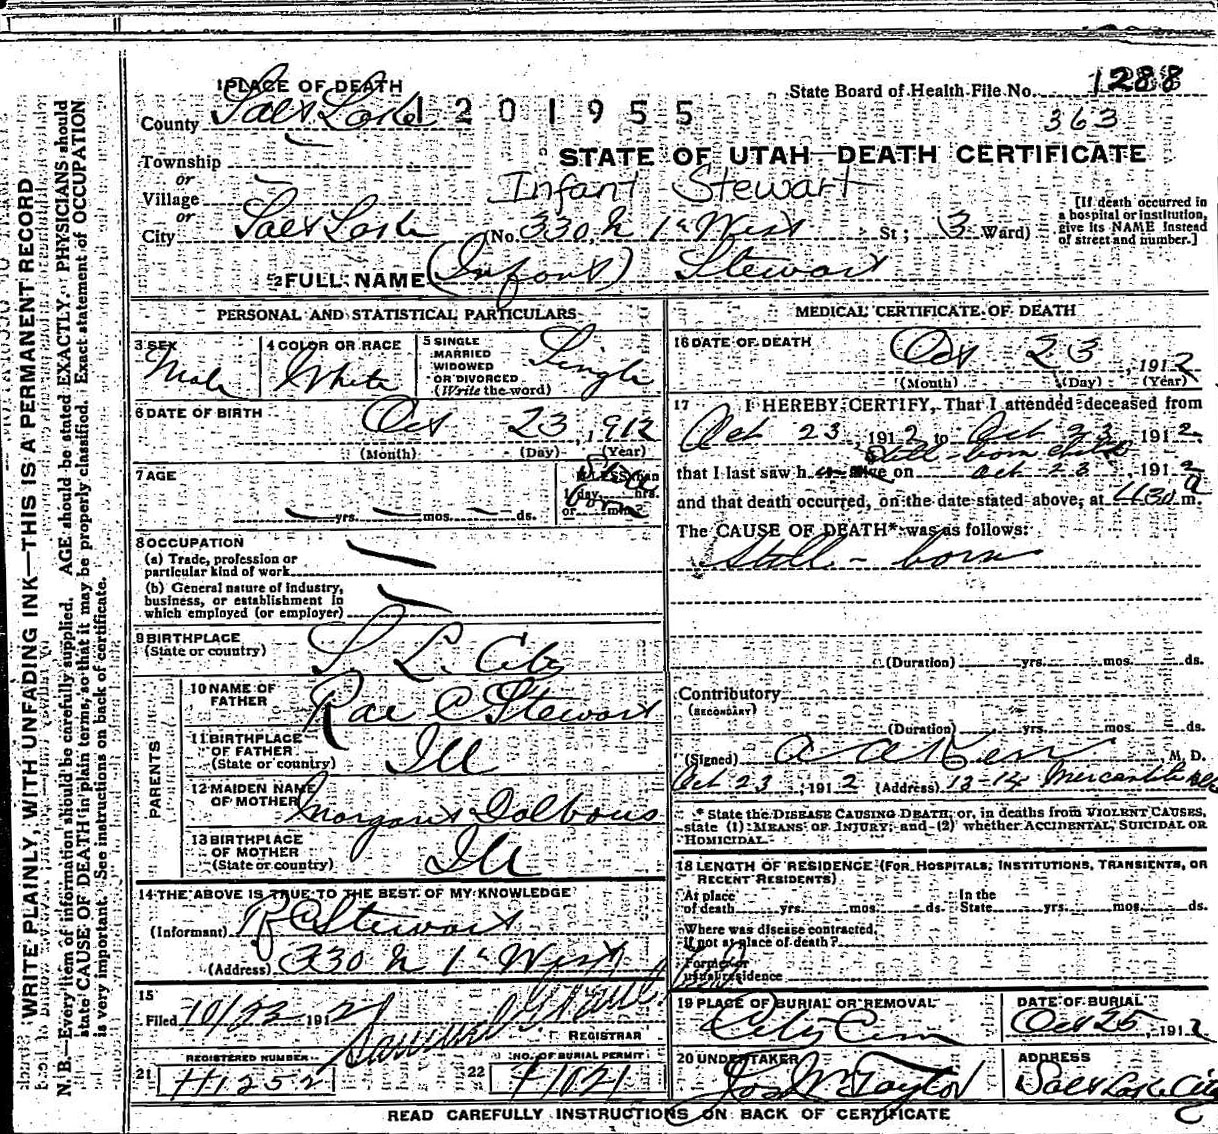 1 PLACE OF DEATH
State Board of Health File No. 1288
County Salt Lake
1201955
363
STATE OF UTAH—DEATH CERTIFICATE
Township
or
Village
Infant Stewart
or
City Salt Lake (No. 330 N 1st West St; 3 Ward)
[If death occurred in a hospital or institution, give its NAME instead of street and number.]
2 FULL NAME (Infant) Stewart
PERSONAL AND STATISTICAL PARTICULARS
3 SEX Male
4 COLOR OR RACE White
5 SINGLE MARRIED WIDOWED OR DIVORCED (Write the word) Single
6 DATE OF BIRTH Oct 23, 1912
(Month) (Day) (Year)
7 AGE
yrs. mos. ds.
8 OCCUPATION
(a) Trade, profession or particular kind of work
(b) General nature of industry, business, or establishment in which employed (or employer)
9 BIRTHPLACE (State or country) S. L. City
PARENTS
10 NAME OF FATHER Rae C Stewart
11 BIRTHPLACE OF FATHER (State or country) Ill
12 MAIDEN NAME OF MOTHER
13 BIRTHPLACE OF MOTHER (State or country) Ill
14 THE ABOVE IS TRUE TO THE BEST OF MY KNOWLEDGE
(Informant) R C Stewart
(Address) 330 N 1st West
15
Filed 10/23 1912
REGISTRAR
REGISTERED NUMBER
NO. OF BURIAL PERMIT
21 H1252
22 H1021
MEDICAL CERTIFICATE OF DEATH
16 DATE OF DEATH Oct 23, 1912
(Month) (Day) (Year)
17 I HEREBY CERTIFY, That I attended deceased from
Oct 23, 1912 to Oct 23 1912
Still-born child
that I last saw h alive on Oct 23, 1912
and that death occurred, on the date stated above, at 1130 a m.
The CAUSE OF DEATH* was as follows:
Still-born
(Duration) yrs. mos. ds.
Contributory
(SECONDARY)
(Duration) yrs. mos. ds.
(Signed) A A Kerr, M. D.
Oct 23, 1912 (Address) 12-14 Mercantile
* State the DISEASE CAUSING DEATH, or, in deaths from VIOLENT CAUSES,
state (1) MEANS OF INJURY; and (2) whether ACCIDENTAL, SUICIDAL OR
HOMICIDAL.
18 LENGTH OF RESIDENCE (FOR HOSPITALS, INSTITUTIONS, TRANSIENTS, OR
RECENT RESIDENTS)
At place of death yrs. mos. ds. In the State yrs. mos. ds.
Where was disease contracted, if not at place of death?
Former or usual residence
19 PLACE OF BURIAL OR REMOVAL City Cem
DATE OF BURIAL Oct 25, 1912
20 UNDERTAKER Jos Wm Taylor
ADDRESS Salt Lake City
READ CAREFULLY INSTRUCTIONS ON BACK OF CERTIFICATE
WRITE PLAINLY, WITH UNFADING INK—THIS IS A PERMANENT RECORD
N. B.—Every item of information should be carefully supplied. AGE should be stated EXACTLY. PHYSICIANS should
state CAUSE OF DEATH in plain terms, so that it may be properly classified. Exact statement of OCCUPATION
is very important. See instructions on back of certificate.